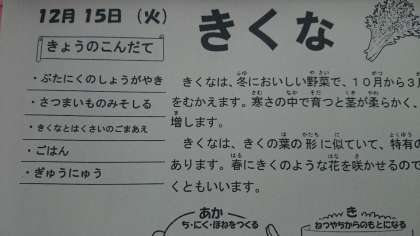 12月 15日 (火)
きくな
きょうのこんだて
・ぶたにくのしょうがやき
・さつまいものみそしる
・きくなとはくさいのごまあえ
・ごはん
・ぎゅうにゅう
きくなは、冬においしい野菜で、10月から3
をむかえます。寒さの中で育つと茎が柔らかく、
増します。
きくなは、きくの葉の形に似ていて、特有の
あります。春にきくのような花を咲かせるので
くともいいます。
あか
ち・にく・ほねをつくる
き
ねつやちからのもとになる